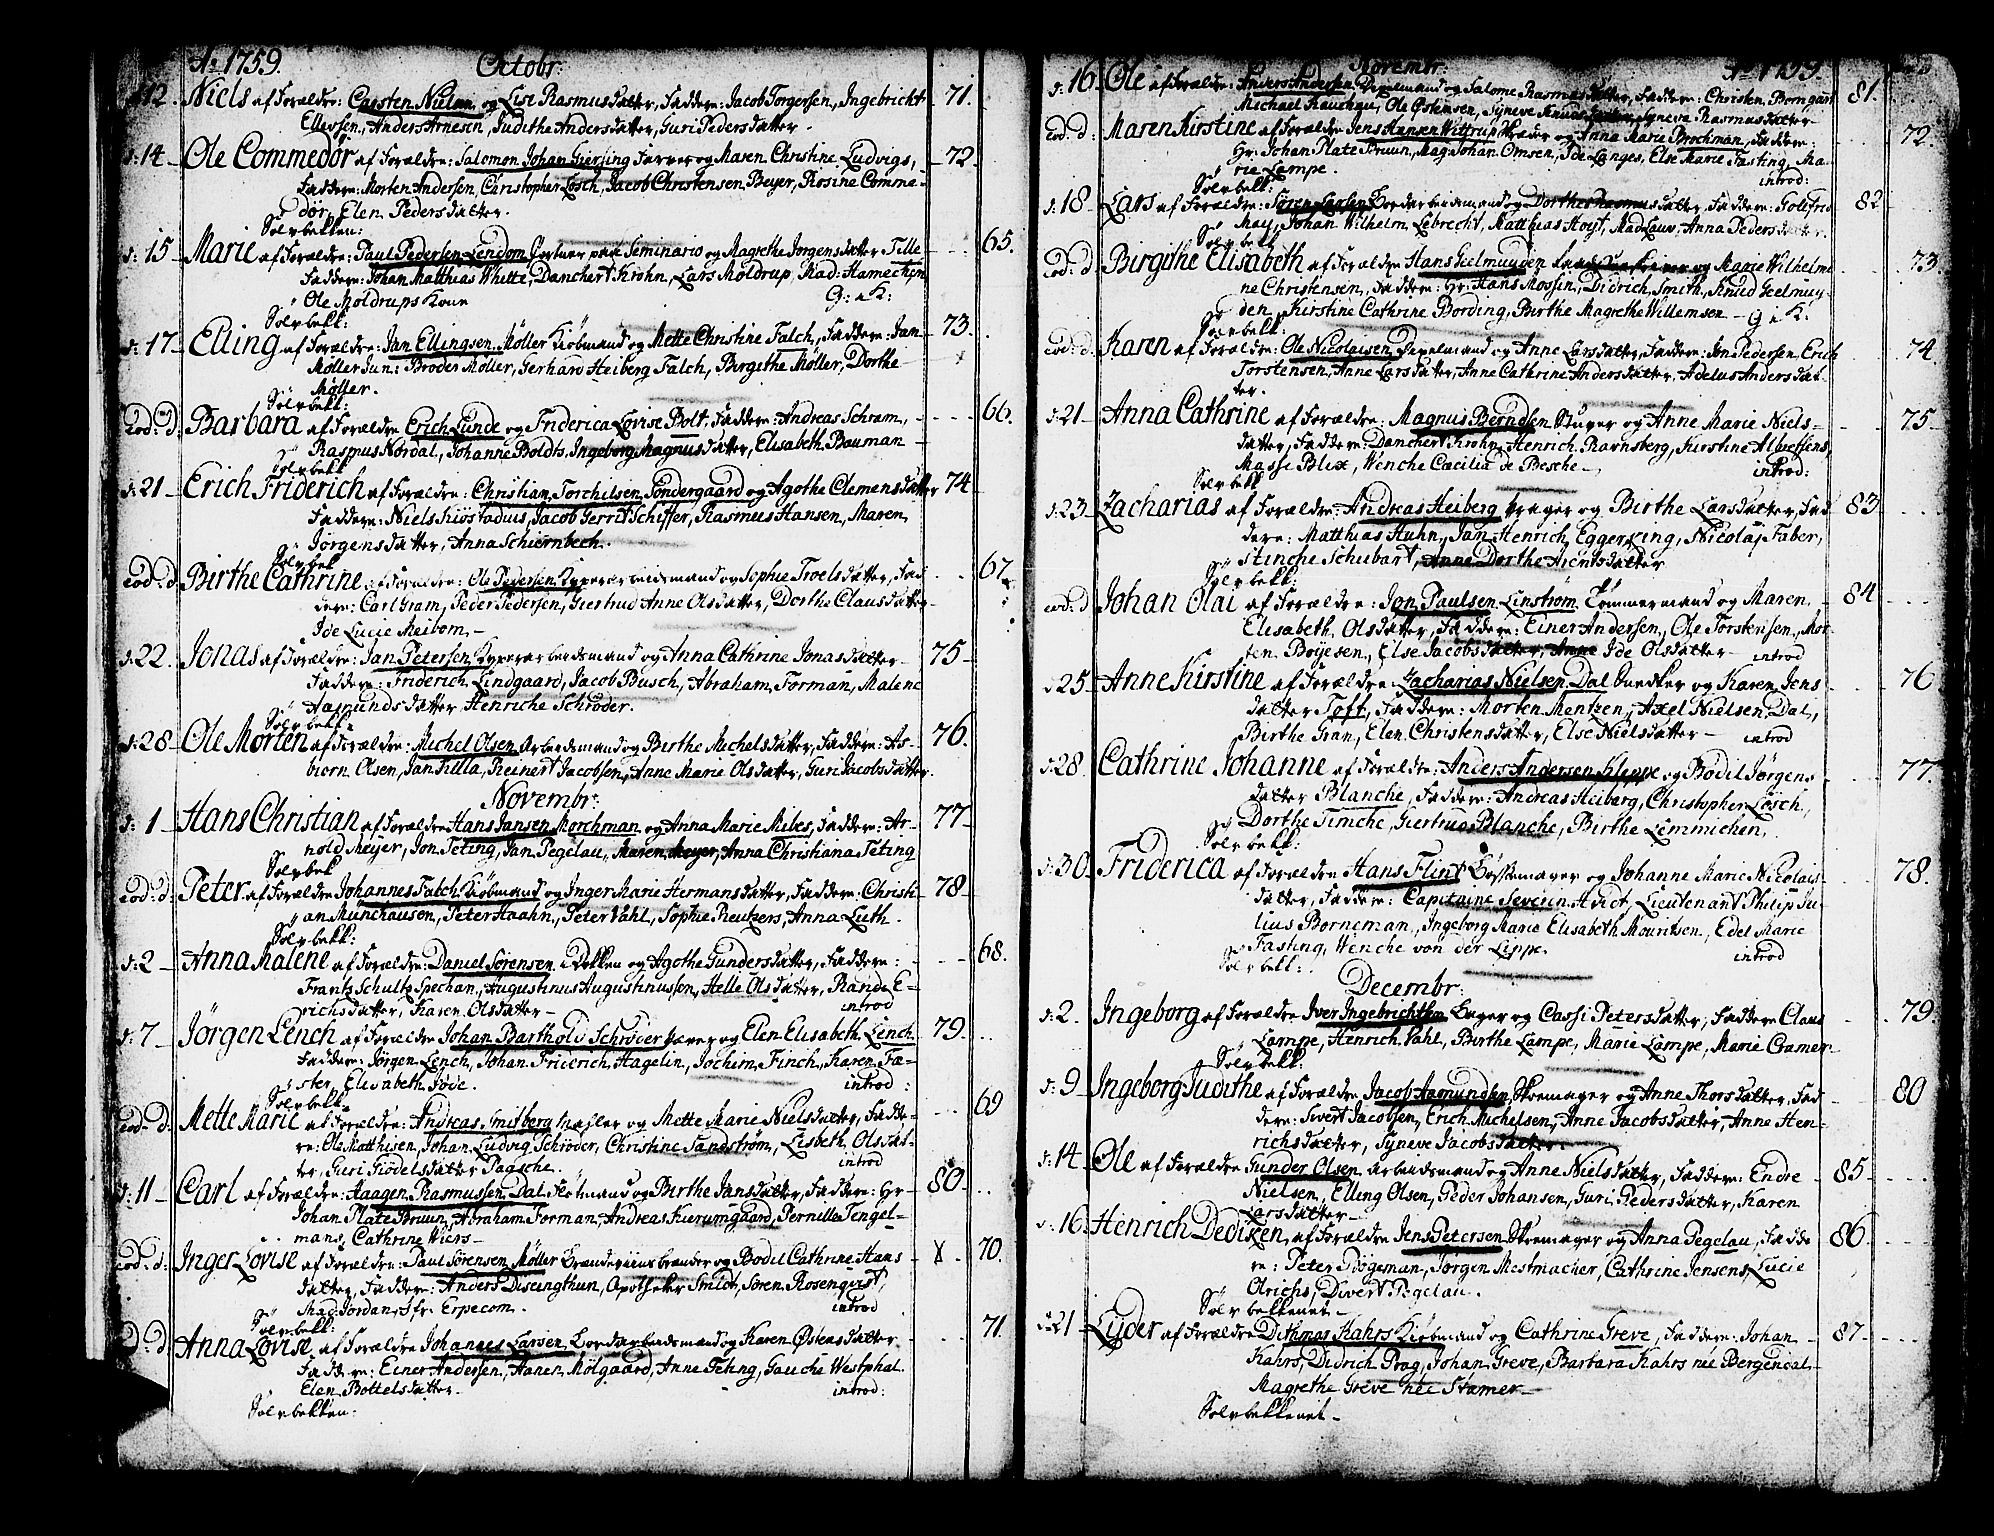 Ao 1759. Octobr:
d: 12. Niels af Forældre: Carsten Nielsen og Lise Rasmusdatter, Faddere: Jacob Torgersen, Ingebricht 71.
Ellevsen, Anders Arnesen, Judithe Andersdatter, Guri Pedersdatter.
d: 14 Ole Commedør af Forældre: Salomon Johan Giersing Farver og Maren Christine Ludvigs, 72
Faddere: Morten Andersen, Christopher Losch, Jacob Christensen Beyer, Rosine Comme-
dør, Elen Pedersdatter.
Sølvbekken:
d: 15 Marie af Forældre: Paul Pedersen Lendom Portner paa Seminario og Magrethe Jørgensdatter Tille 65.
Faddere: Johan Matthias Whelte, Danchert Krohn, Lars Moldrup, Mad: Hameckyn
Ole Moldrups Kone G: i K:
Sølvbekk:
d: 17 Elling af Forældre: Jan Ellingsen Møller Kiøbmand og Mette Christine Falch, Faddere: Jan 73.
Møller Jun: Broder Møller, Gerhard Heiberg Falch, Birgithe Møller, Dorthe
Møller.
Sølvbekk:
eod: d: Barbara af Forældre Erich Lunde og Friderica Lovise Bolt, Faddere: Andreas Schram, 66.
Rasmus Nordal, Johanne Boldts, Ingeborg Magnusdatter, Elisabeth Bauman
Sølvbekk
d: 21 Erich Friderich af Forældre: Christian Torchilsen Søndergaard og Agothe Clemensdatter 74
Faddere: Niels Riisstaduis, Jacob Gerrit Schiffer, Rasmus Hansen, Maren
Jørgensdatter, Anna Schiernbech.
Sølvbek
eod: d. Birthe Cathrine af Forældre: Ole Pedersen Kyperarbeidsmand og Sophie Troelsdatter, Fad 67.
dere: Carl Gram, Peder Pedersen, Giertrud Anne Olsdatter, Dorthe Clausdatter
Ide Lucie Meibom.
d: 22. Jonas af Forældre: Jan Petersen Kyperarbeidsmand og Anna Cathrine Jonasdatter 75
Faddere: Friderich Lindgaard, Jacob Busch, Abraham Forman, Malene
Aamundsdatter Henriche Schrøder.
Sølvbekk:
d: 28 Ole Morten af Forældre: Michel Olsen Arbeidsmand og Birthe Michelsdatter, Faddere: As- 76.
biørn Olsen, Jan Tilla, Reinert Jacobsen, Anne Marie Olsdatter, Guri Jacobsdatter.
Novembr:
d: 1 Hans Christian af Forældre Hans Jansen Morchman og Anna Marie Miles, Faddere: Ar- 77
nold Meyer, Jon Teting, Jan Pegelau, Maren Meyer, Anna Christiana Teting
Sølvbek
eod: d: Peter af Forældre Johannes Falch Kiøbmand og Inger Marie Hermansdatter, Faddere: Christi 78
an Münchausen, Peter Haahn, Peter Vahl, Sophie Reutzers, Anna Luth.
Sølvbekk:
d: 2 Anna Malene af Forældre: Daniel Sørensen i Dokken og Agothe Gundersdatter, Faddere: 68.
Frantz Schultz Spechan, Augustinus Augustinussen, Helle Olsdatter, Rande E=
richsdatter, Karen Olsdatter introd
d: 7 Jørgen Lench af Forældre Johan Barthold Schrøder og Elen Elisabeth Lench 79.
Faddere: Jørgen Lench, Johan Friderich Hagelin, Jochim Finch, Karen Fa=
ster, Elisabeth Jøde. introd:
Sølvbekk:
eod: d. Mette Marie af Forældre: Andreas Smitberg Mægler og Mette Marie Nielsdatter, Fadde- 69
re: Ole Matthisen, Johan Ludvig Schrøder, Christine Sandstrøm, Lisbeth Olsdat-
ter, Guri Giødelsdatter Pagsche. introd
d: 11 Carl af Forældre: Haagen Rasmussen Dal Flotmand og Birthe Jansdatter, Faddere: Hr 80
Johan Plate Bruun, Abraham Forman, Andreas Kierumgaard, Pernille Tengel-
mans, Cathrine Wiers
eod: d: Inger Lovise af Forældre: Paul Sørensen Møller Brændeviinsbrænder og Bodil Cathrine Hans X 70.
datter, Faddere: Anders Diseingthun, Apotheker Smidt, Søren Rosenqvist,
Mad: Jordan, Jfr. Erpecom. introd
Sølvbekk:
d: d Anna Lovise af Forældre Johannes Larsen Bordarbeidsmand og Karen Østensdatter 71.
Faddere: Einer Andersen, Hanen Mølgaard, Anne Fehng, Gauche Westphal
Elen Bottelsdatter. introd:
Sølvbekken:
Novembr: Ao 1759.
d: 16. Ole af Forældre: Anders Andersen Pepelmand og Salome Rasmusdatter, Faddere: Christen Borngaart 81.
Michael Rauchgu, Ole Østensen, Syneve Knudsdatter, Syneve Rasmusdatter
eod: d: Maren Kirstine af Forældre Jens Hansen Wittrup Skræder og Anna Marie Brochman, Faddere: 72.
Hr: Johan Plate Bruun, Mag: Johan Omsen, Ide Langes, Else Marie Fasting, Ma-
rie Lampe. introd:
Sølvbekk:
d: 18 Lars af Forældre: Søren Larsen Bordarbeidsmand og Dorthe Rasmusdatter, Faddere: Gottfrid 82
May, Johan Wilhelm Lebrecht, Matthias Hoyst, Mad Lauv, Anna Pedersdatter.
Sølvbekk
eod: d Birgithe Elisabeth af Forældre Hans Gielmuyden og Marie Wilhelmi 73
ne Christensen, Faddere: Hr: Hans Mossin, Didrich Smith, Knud Geelmuy-
den, Kirstine Cathrine Bording, Birthe Magrethe Willemsen G i K.
Sølvbekk:
eod: d. Karen af Forældre: Ole Nicolaisen Pepelmand og Anne Larsdatter, Faddere: Jon Pedersen, Erich 74
Torstensen, Anne Larsdatter, Anne Cathrine Andersdatter, Adelus Andersdat-
ter.
d: 21 Anna Cathrine af Forældre: Magnus Berndsen Stuver og Anne Marie Niels- 75
datter, Faddere: Danchert Krohn, Henrich Ravnsberg, Kirstine Albretsens,
Masse Blix, Wenche Cæcilia de Besche introd:
Sølvbekk
d: 23. Zacharias af Forældre: Andreas Heiberg Krager og Birthe Larsdatter, Fad 83
dere: Matthias Huhn, Jan Henrich Eggerking, Nicolaj Faber,
Stinche Schubart, Anne Dorthe Arentsdatter
Sølvbekk:
eod: d Johan Olai af Forældre: Jon Paulsen Linstrøm Tømmermand og Maren 84
Elisabeth Olsdatter, Faddere: Einer Andersen, Ole Torstensen, Mor-
ten Boyesen, Else Jacobsdatter, Anne Ide Olsdatter introd
d: 25 Anne Kirstine af Forældre: Zacharias Nielsen Dal Snedker og Karen Jens 76
datter Toft, Faddere: Morten Mentzen, Axel Nielsen Dal,
Birthe Gran, Elen Christensdatter, Else Nielsdatter introd
d: 28. Cathrine Johanne af Forældre: Anders Andersen Kleppe og Bodil Jørgens 77.
datter Blanche, Faddere: Andreas Heiberg, Christopher Løsch,
Dorthe Timche, Giertrud Blanche, Birthe Lemmichen,
Sølvbekk:
d: 30. Friderica af Forældre Hans Flint Bøssemager og Johanne Marie Nicolais 78.
datter, Faddere: Capitaine Severin Adict, Lieutenant Philip Ju-
lius Borneman, Ingeborg Marie Elisabeth Mouritsen, Edel Marie
Fasting, Wenche von der Lippe. introd
Sølvbekk:
Decembr:
d: 2. Ingeborg af Forældre Iver Ingebrichtsen Bager og Cassi Petersdatter, Faddere Claus 79
Lampe, Henrich Vahl, Birthe Lampe, Marie Lampe, Marie Cramer.
Sølvbekk:
d: 9 Ingeborg Judithe af Forældre Jacob Aamundsen Skoemager og Anne Thorsdatter, Fad 80
dere: Sivert Jacobsen, Erich Michelsen, Anne Jacobsdatter, Anne Hen-
richsdatter, Syneve Jacobsdatter.
d: 14. Ole af Forældre Gunder Olsen Arbeidsmand og Anne Nielsdatter, Faddere: Endre 85
Nielsen, Elling Olsen, Peder Johansen, Guri Pedersdatter, Karen
Larsdatter
d: 16. Henrich Dediken af Forældre Jens Petersen Skoemager og Anna Pegelau, Fadde 86.
re: Peter Dögeman, Jørgen Mestmacher, Cathrine Jensens, Lucie
Olrichs, Divert Pegelau.
Sølvbekkenet
d: 21 Lyder af Forældre Dithmas Kahrs Kiøbmand og Cathrine Greve, Faddere: Johan 87.
Kahrs, Didrich Prag, Johan Greve, Barbara Kahrs née Bergendal
Magrethe Greve née Stamer
Sølvbekkenet